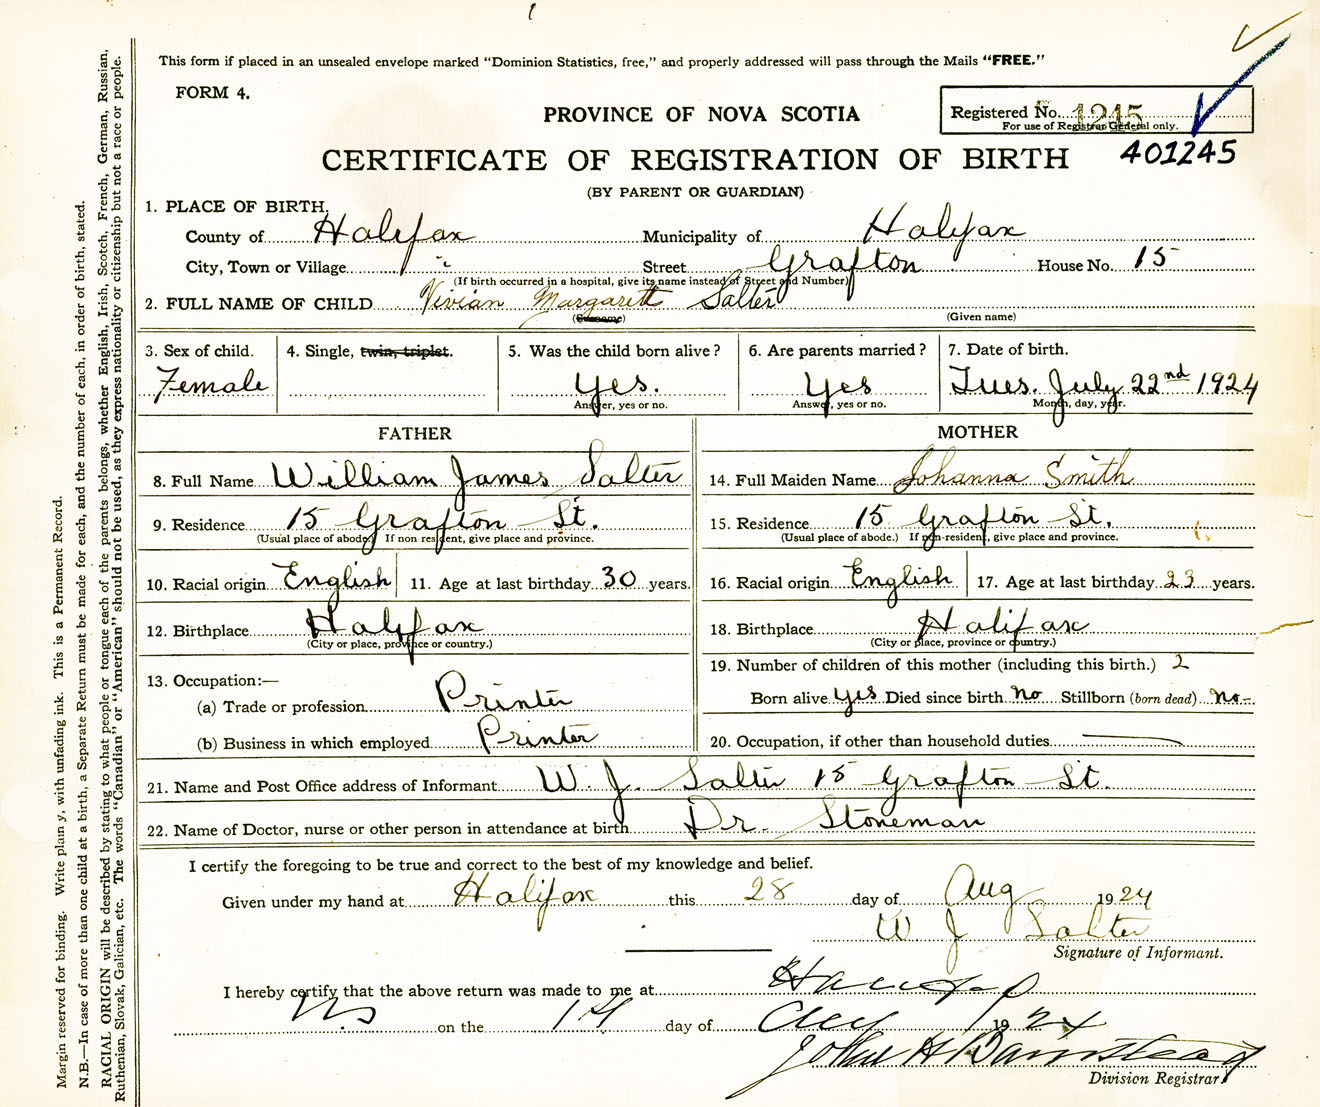 This form if placed in an unsealed envelope marked "Dominion Statistics, free," and properly addressed will pass through the Mails "FREE."
FORM 4.
PROVINCE OF NOVA SCOTIA
Registered No. 1245
For use of Registrar General only.
CERTIFICATE OF REGISTRATION OF BIRTH
401245
(BY PARENT OR GUARDIAN)
1. PLACE OF BIRTH
County of Halifax Municipality of Halifax
City, Town or Village Street Grafton House No. 15
(If birth occurred in a hospital, give its name instead of Street and Number)
2. FULL NAME OF CHILD Vivian Margarett Salter
(Surname) (Given name)
3. Sex of child. 4. Single, twin, triplet. 5. Was the child born alive? 6. Are parents married? 7. Date of birth.
Female Yes. Yes Tues. July 22nd 1924
Answer, yes or no. Answer, yes or no. Month, day, year.
FATHER MOTHER
8. Full Name William James Salter 14. Full Maiden Name Johanna Smith
9. Residence 15 Grafton St. 15. Residence 15 Grafton St.
(Usual place of abode.) If non resident, give place and province. (Usual place of abode.) If non-resident, give place and province.
10. Racial origin English 11. Age at last birthday 30 years. 16. Racial origin English 17. Age at last birthday 23 years.
12. Birthplace Halifax 18. Birthplace Halifax
(City or place, province or country.) (City or place, province or country.)
19. Number of children of this mother (including this birth.) 2
13. Occupation:—
Born alive yes Died since birth no Stillborn (born dead) no-
(a) Trade or profession Printer
(b) Business in which employed Printer 20. Occupation, if other than household duties
21. Name and Post Office address of Informant W. J. Salter 15 Grafton St.
22. Name of Doctor, nurse or other person in attendance at birth Dr. Stoneman
I certify the foregoing to be true and correct to the best of my knowledge and belief.
Given under my hand at Halifax this 28 day of Aug 1924
W J Salter
Signature of Informant.
I hereby certify that the above return was made to me at Halifax
NS on the day of 1924
John A Barnstead
Division Registrar
Margin reserved for binding. Write plain y, with unfading ink. This is a Permanent Record.
N.B.—In case of more than one child at a birth, a Separate Return must be made for each, and the number of each, in order of birth, stated.
RACIAL ORIGIN will be described by stating to what people or tongue each of the parents belongs, whether English, Irish, Scotch, French, German, Russian,
Ruthenian, Slovak, Galician, etc. The words "Canadian" or "American" should not be used, as they express nationality or citizenship but not a race or people.